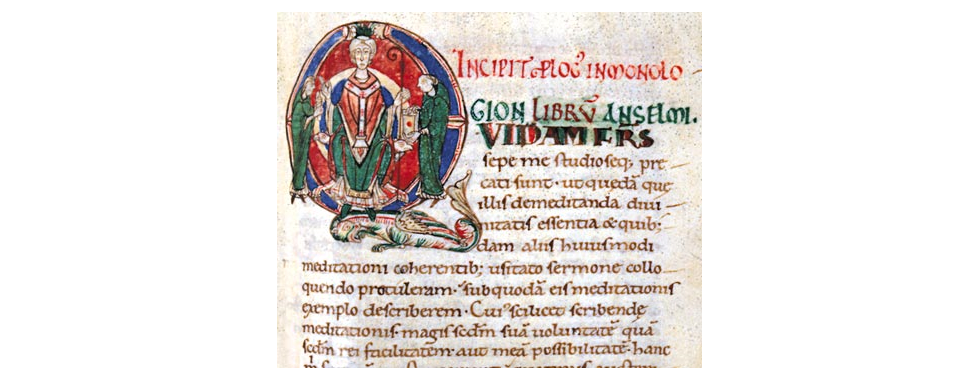 INCIPIT PLOG' IN MONOLO
GION LIBRŪ ANSELMI.
VIDAM FRS
sepe me studioseq; pre
cati sunt · ut quedā que
illis demeditanda diui
nitatis essentia & quib;
dam aliis huiusmodi
meditationi coherentib; usitato sermone collo
quendo protuleram · sub quodā eis meditationis
exemplo describerem · Cui' scilicet scribende
meditationis magis scdm suā voluntatē quā
scdm rei facilitatem aut meā possibilitatē · hanc